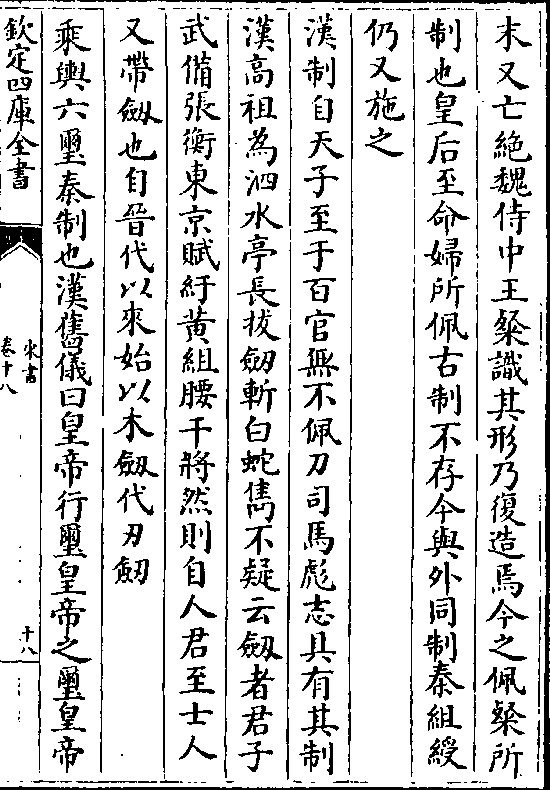 末又亡絶魏侍中王粲識其形乃復造焉今之佩粲所
制也皇后至命婦所佩古制不存今與外同制秦組綬
仍又施之
漢制自天子至于百官無不佩刀司馬彪志具有其制
漢高祖為泗水亭長拔劒斬白蛇雋不疑云劒者君子
武備張衡東京賦紆黄組腰干將然則自人君至士人
又帶劒也自晉代以來始以木劒代刃劒
乘輿六璽秦制也漢舊儀曰皇帝行璽皇帝之璽皇帝
欽定四庫全書
宋書
卷十八
十八